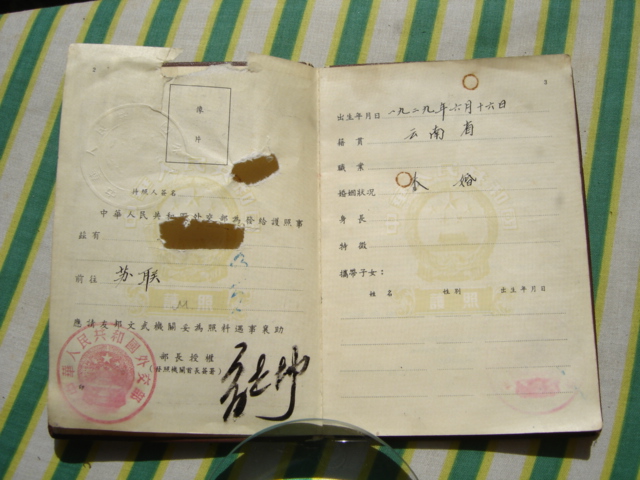 2
像
片
持照人簽名
中華人民共和國外交部為發給護照事
茲有
前往 苏联
應請友邦文武機關妥為照料遇事襄助
部長授權
(發照機關首長簽署)
中華人民共和國外交部
3
出生年月日 一九二九年六月十六日
籍貫 云南省
職業
婚姻狀況 未婚
身長
特徵
攜帶子女：
姓名 性別 出生年月日